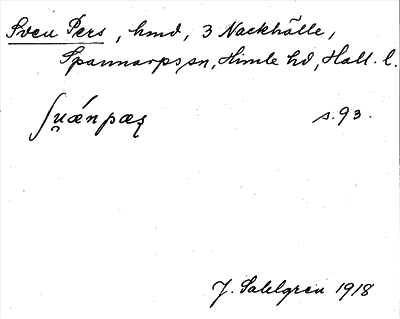 Sven Pers, hmd, 3 Nackhälle,
Spannarps sn, Himle hd, Hall. l.
ʃu̯ánpæʂ s. 93.
J. Sahlgren 1918